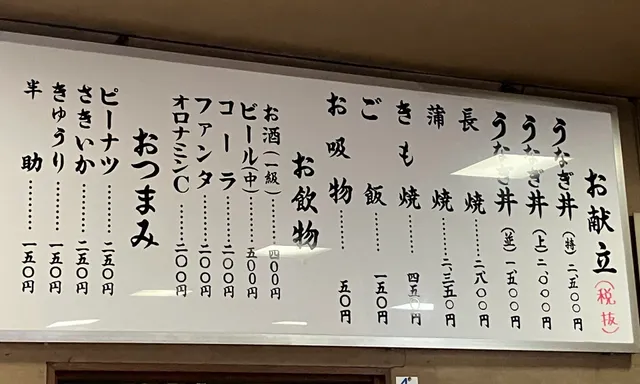 お献立(税抜)
うなぎ丼(特)二、五〇〇円
うなぎ丼(上)二、〇〇〇円
うなぎ丼(並)一五〇〇円
長焼………二、八〇〇円
蒲焼………二、三五〇円
きも焼………四五〇円
ご飯………一五〇円
お吸物………五〇円
お飲物
お酒(一級)………四〇〇円
ビール(中)………五〇〇円
コーラ………二〇〇円
ファンタ………二〇〇円
オロナミンC………二〇〇円
おつまみ
ピーナツ………二五〇円
さきいか………二五〇円
きゅうり………一五〇円
半助………一五〇円